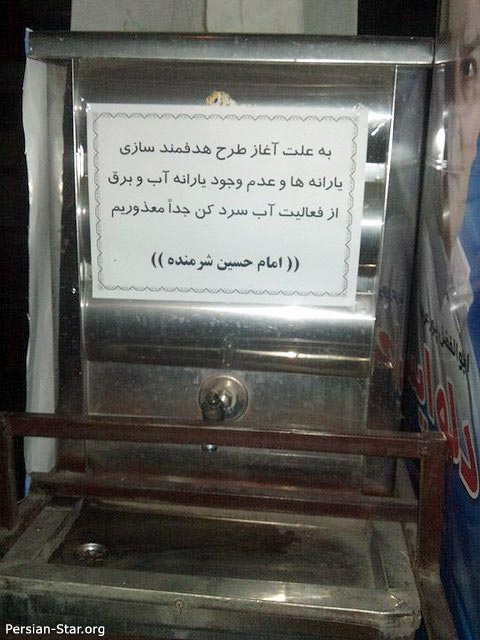 به علت آغاز طرح هدفمند سازی
یارانه ها و عدم وجود یارانه آب و برق
از فعالیت آب سرد کن جداً معذوریم
(( امام حسین شرمنده ))
ابوالفضل
Persian-Star.org